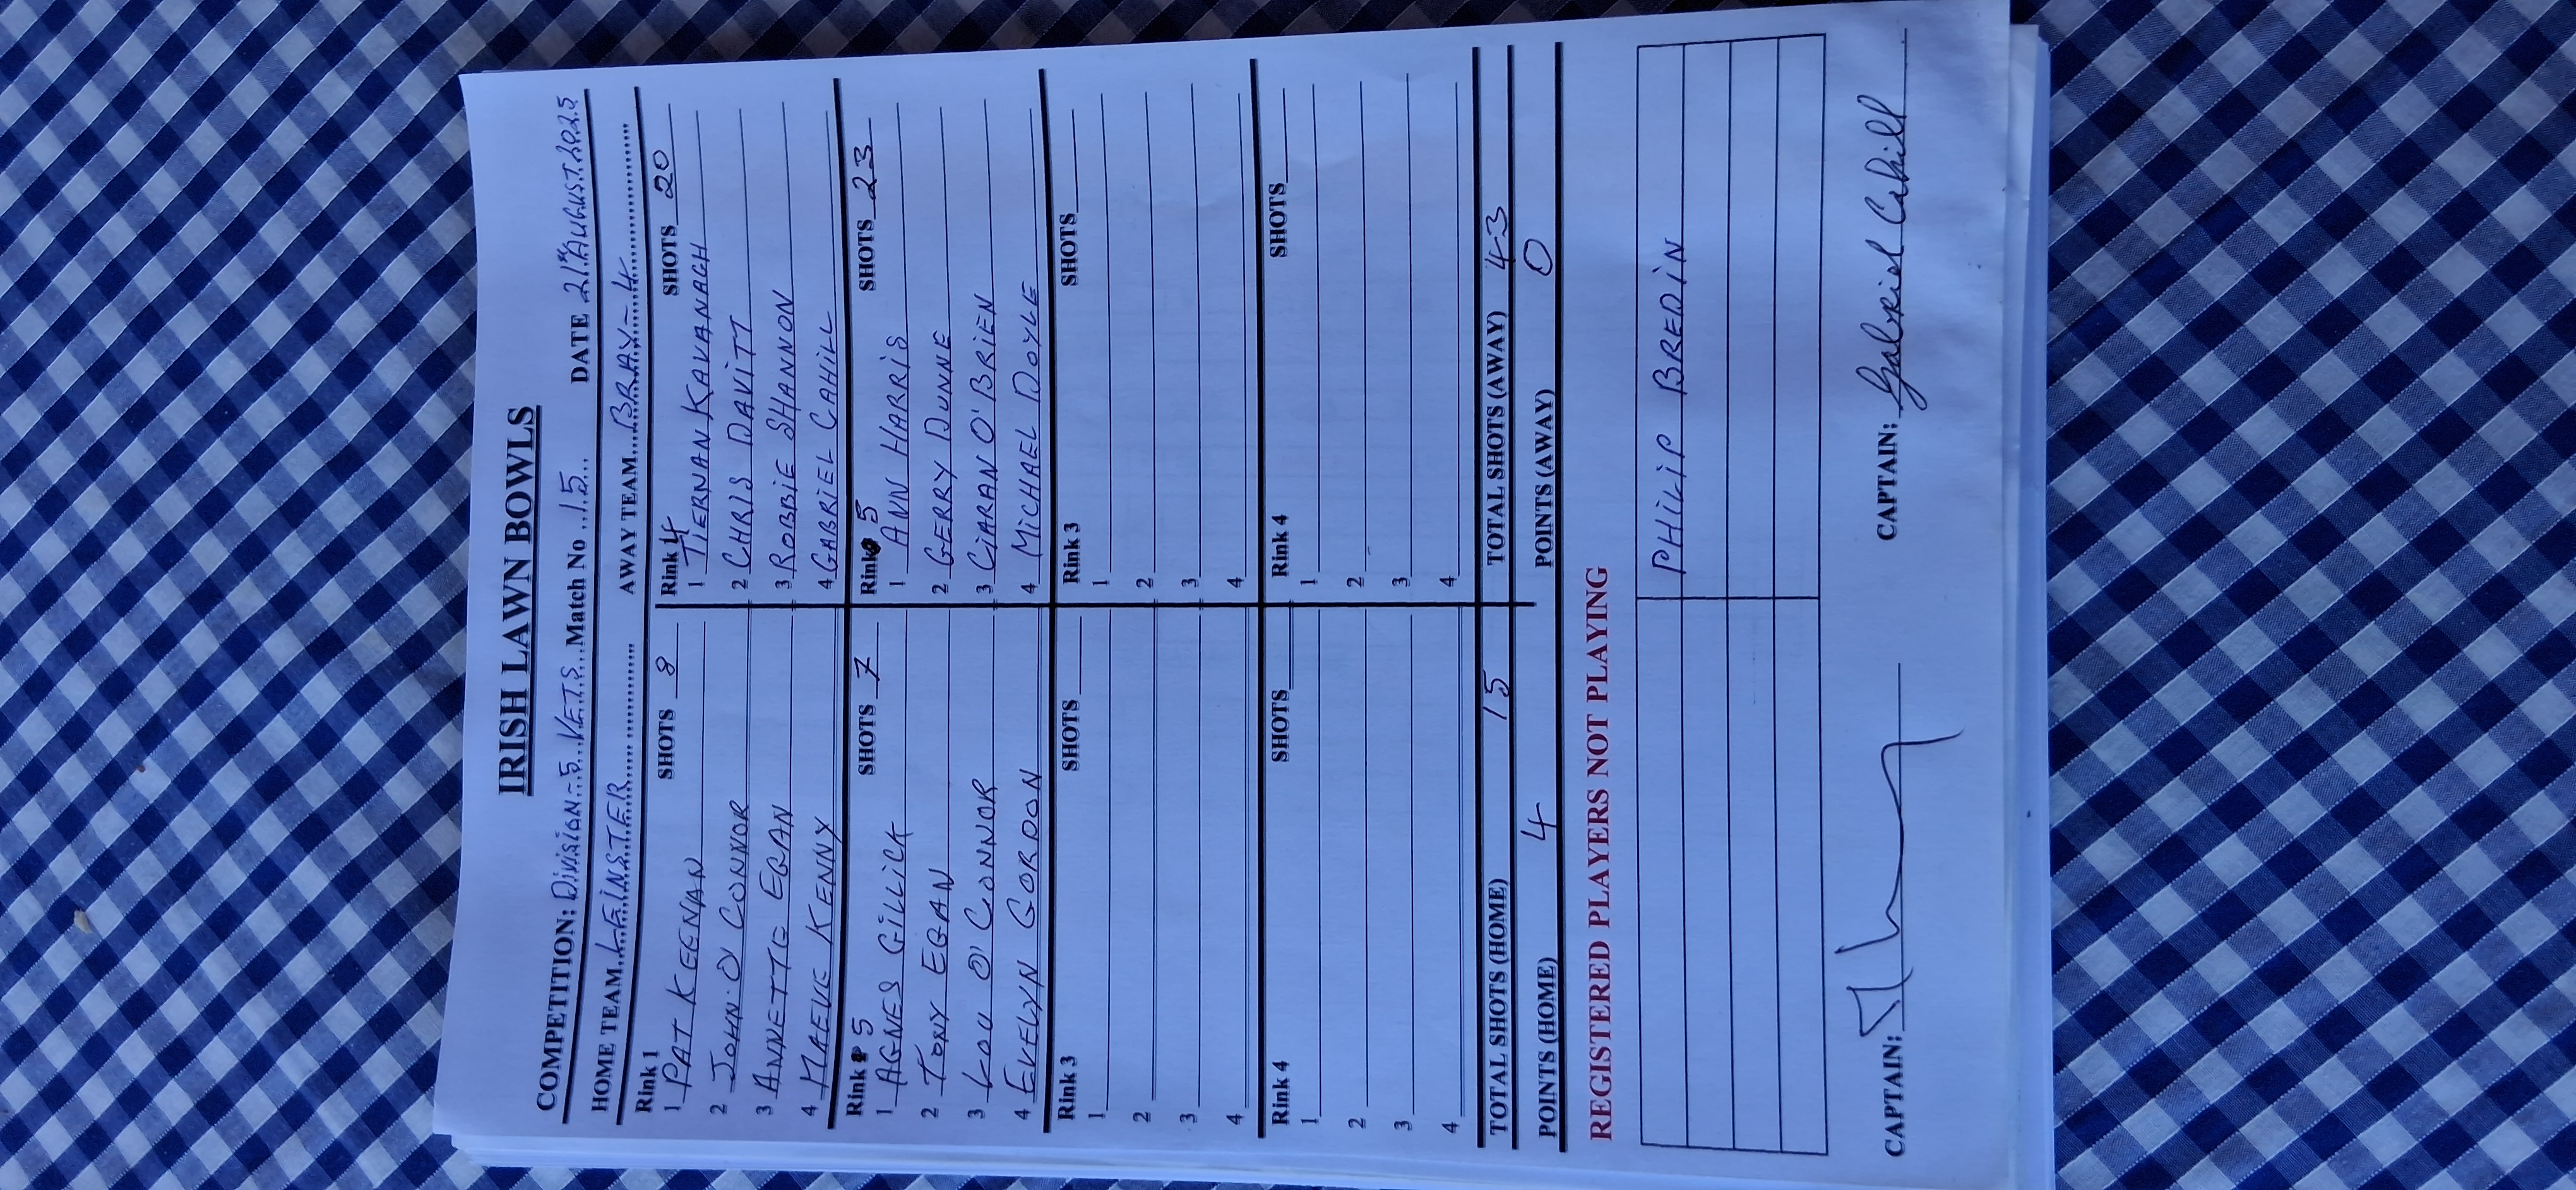 IRISH LAWN BOWLS
COMPETITION: Division-5 VETS Match No 15 DATE 21st AUGUST 2025
HOME TEAM LEINSTER AWAY TEAM BRAY-4
Rink 1 SHOTS 8 Rink 4 SHOTS 20
1 PAT KEENAN 1 TIERNAN KAVANAGH
2 JOHN O'CONNOR 2 CHRIS DAVITT
3 ANNETTE EGAN 3 ROBBIE SHANNON
4 MAEVE KENNY 4 GABRIEL CAHILL
Rink 5 SHOTS 7 Rink 5 SHOTS 23
1 AGNES GILLICK 1 ANN HARRIS
2 TONY EGAN 2 GERRY DUNNE
3 LOU O'CONNOR 3 CIARAN O'BRIEN
4 EVELYN GORDON 4 MICHAEL DOYLE
Rink 3 SHOTS Rink 3 SHOTS
1 1
2 2
3 3
4 4
Rink 4 SHOTS Rink 4 SHOTS
1 1
2 2
3 3
4 4
TOTAL SHOTS (HOME) 15 TOTAL SHOTS (AWAY) 43
POINTS (HOME) 4 POINTS (AWAY) 0
REGISTERED PLAYERS NOT PLAYING
PHILIP BREDIN
CAPTAIN: CAPTAIN: Gabriel Cahill